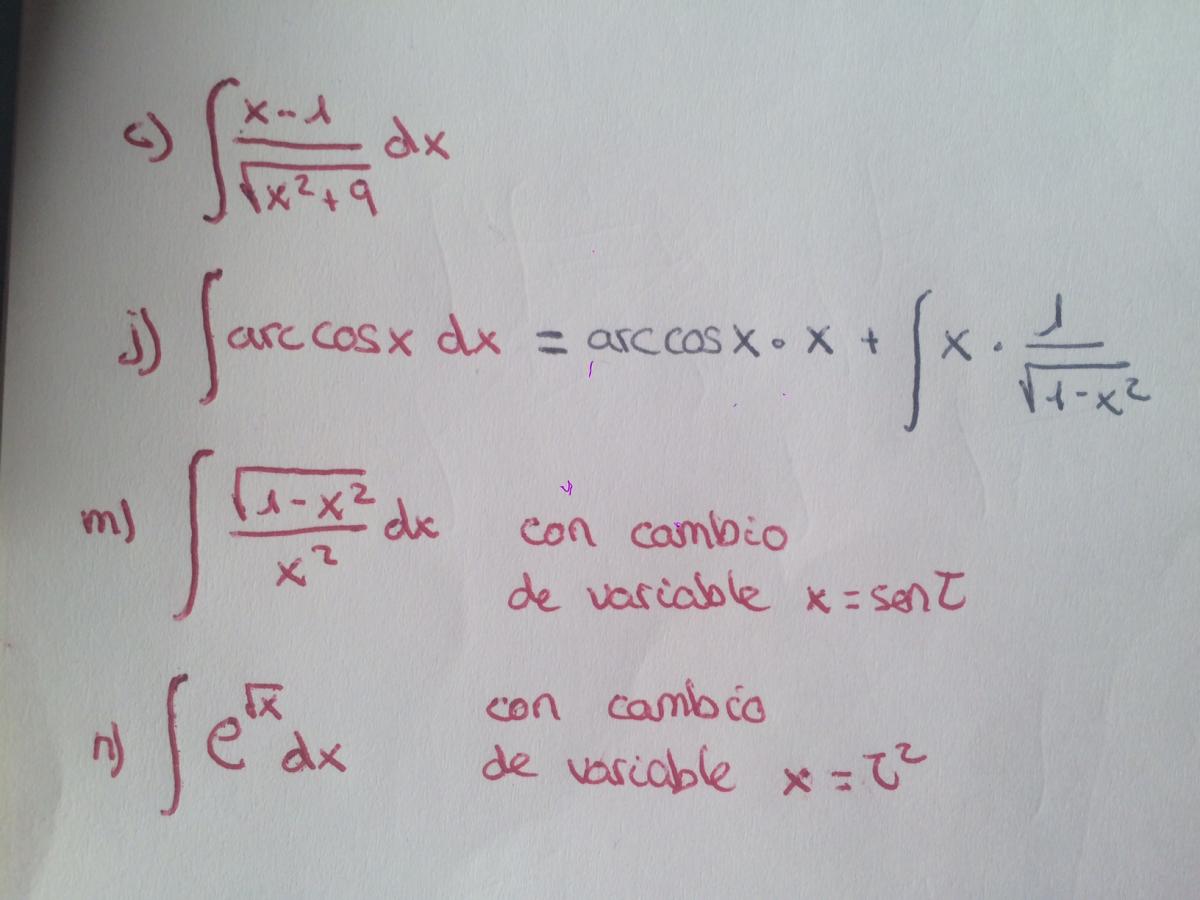 c) ∫ x-1 / √x²+9 dx
j) ∫ arccosx dx = arccosx · x + ∫ x · 1 / √1-x²
m) ∫ √1-x² / x² dx con cambio
de variable x = sen τ
n) ∫ e^√x dx con cambio
de variable x = τ²